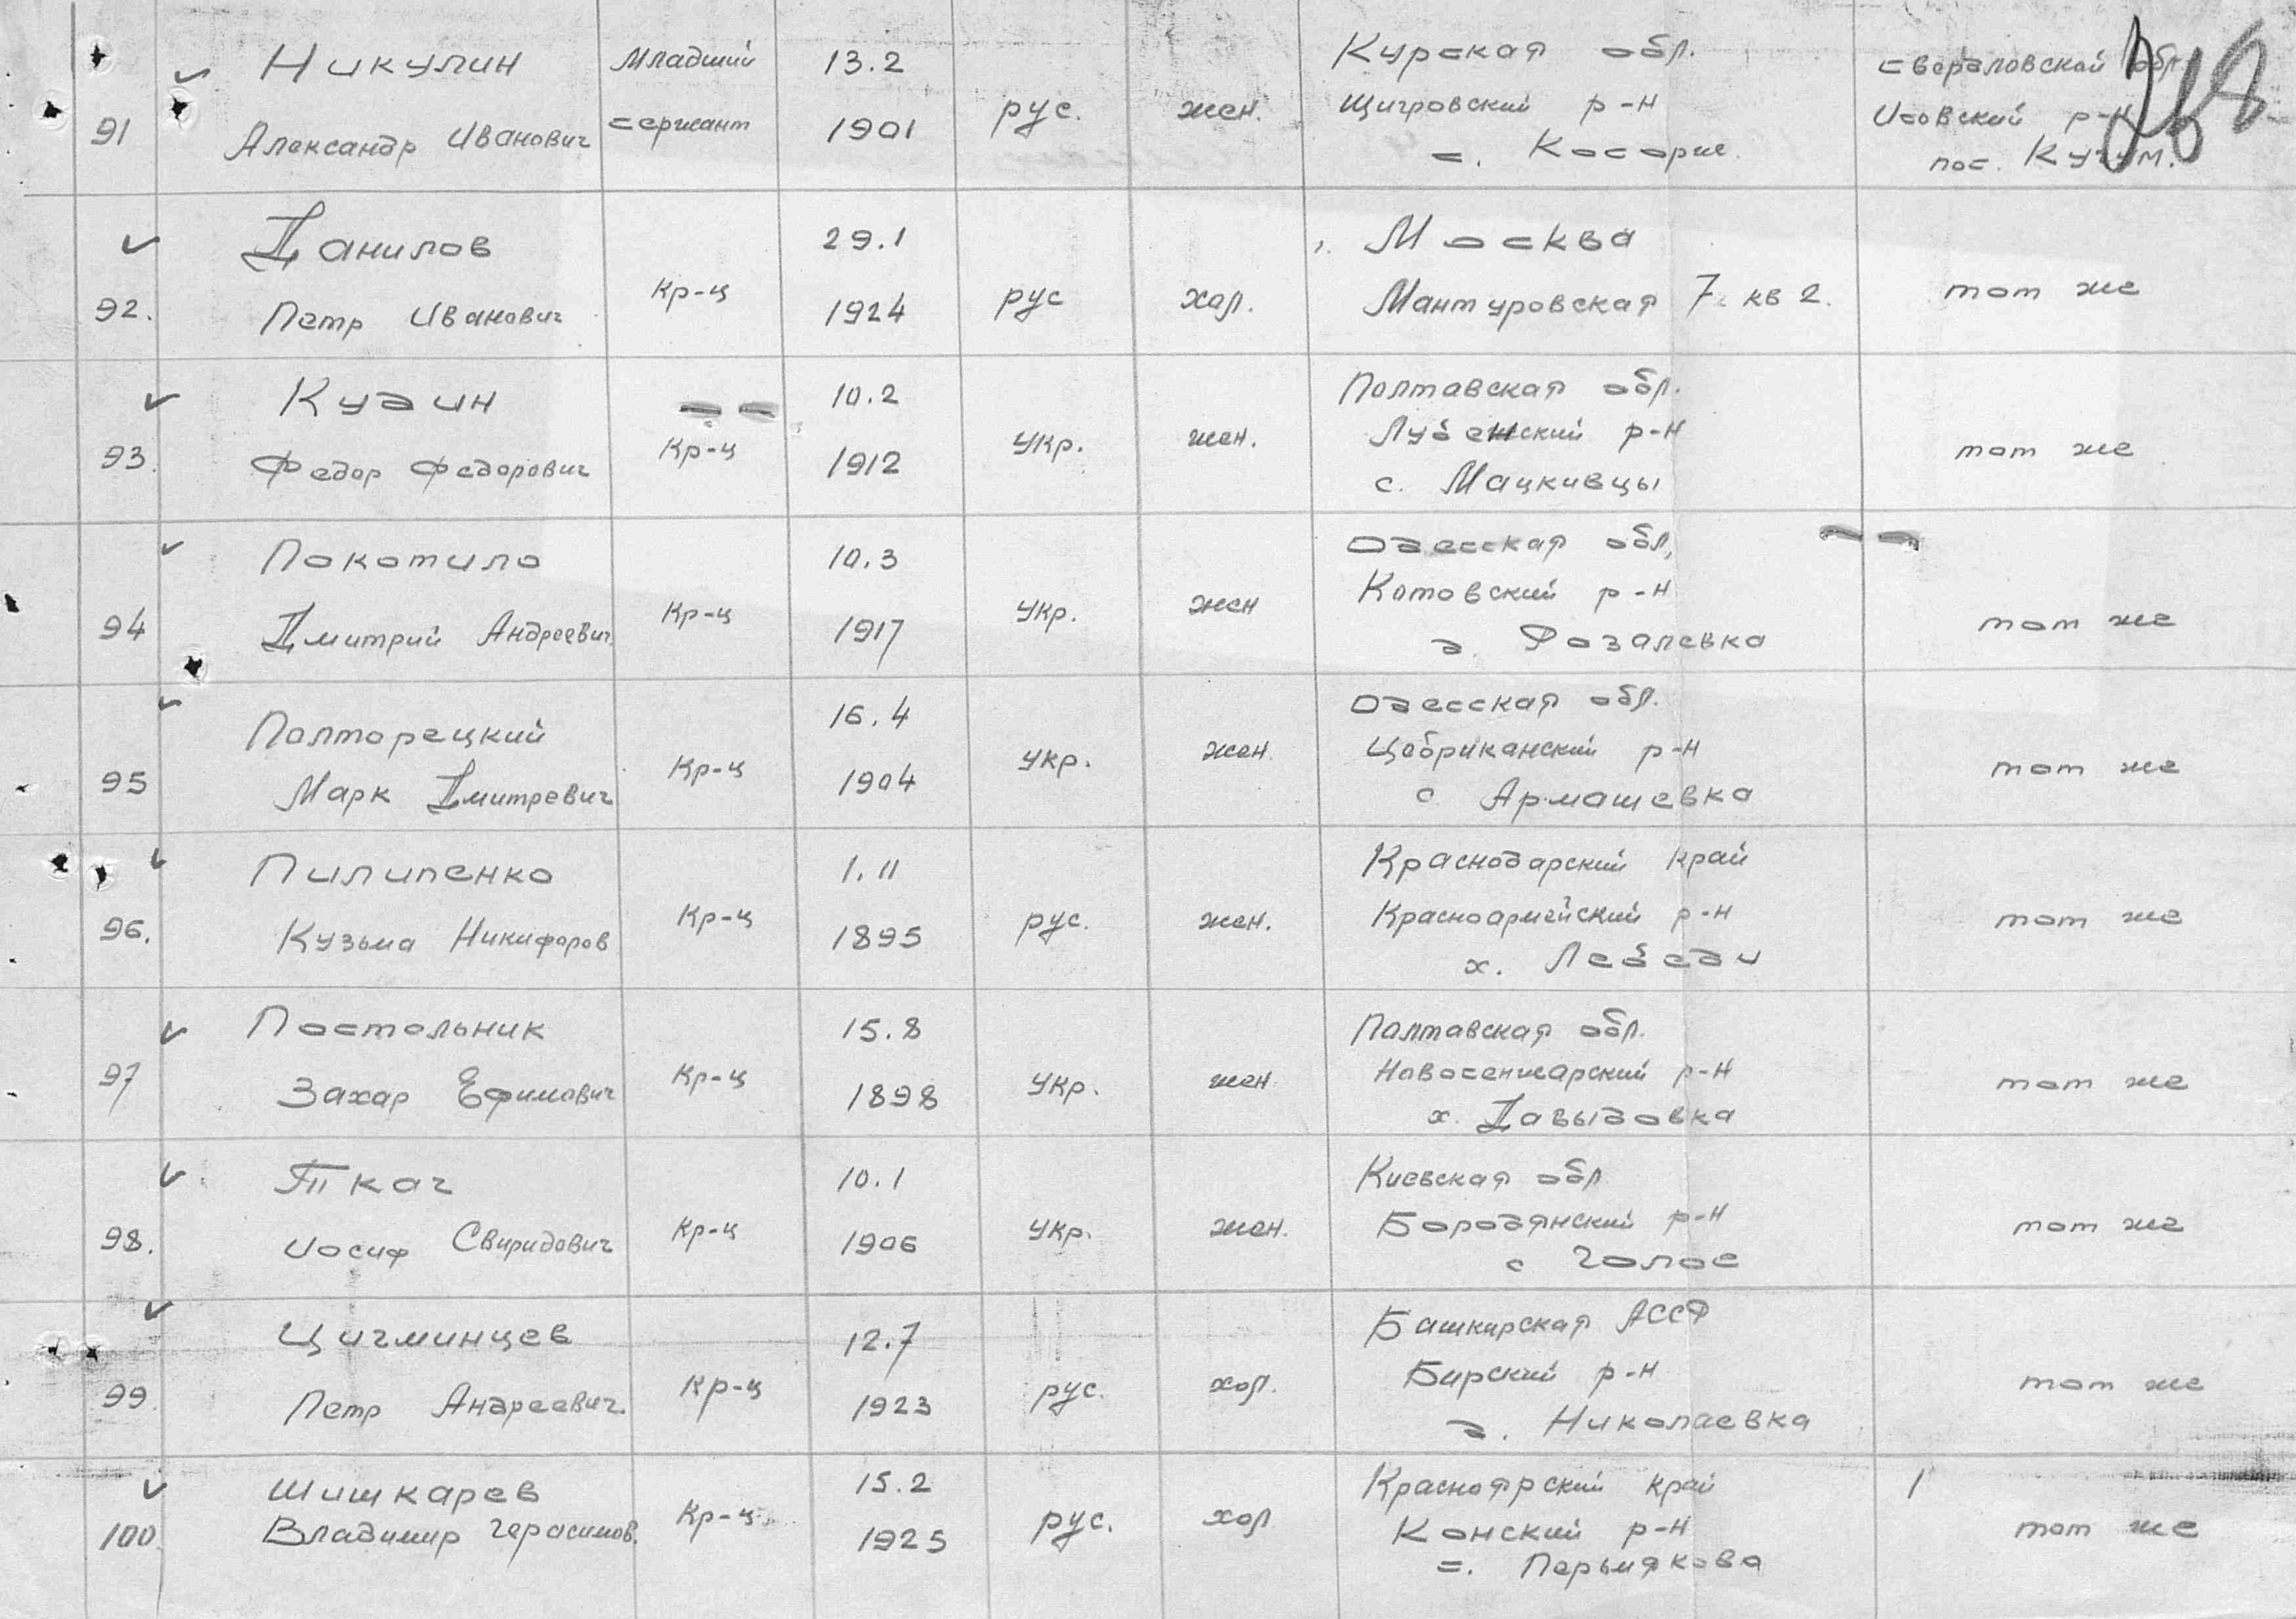 268
91 Никулин Младший 13.2 Курская обл. Свердловской обл
Александр Иванович сержант 1901 рус. жен. Щигровский р-н Исовский р-н
с. Косорже. пос. Кучум.
92. Данилов 29.1 г. Москва
Петр Иванович Кр-ц 1924 рус хол. Мантуровская 7 кв 2. тот же
93. Кудин 10.2 Полтавская обл.
Федор Федорович Кр-ц 1912 укр. жен. Лубенский р-н тот же
с. Мацкивцы
94 Покотило 10.3 Одесская обл,
Дмитрий Андреевич Кр-ц 1917 укр. жен Котовский р-н тот же
д. Розалевка
95 Полторецкий 16.4 Одесская обл.
Марк Дмитревич Кр-ц 1904 укр. жен. Цебриканский р-н тот же
с. Армашевка
96. Пилипенко 1.11 Краснодарский край
Кузьма Никифоров Кр-ц 1895 рус. жен. Красноармейский р-н тот же
х. Лебеди
97 Постольник 15.8 Полтавская обл.
Захар Ефимович Кр-ц 1898 укр. жен Новосенжарский р-н тот же
х. Давыдовка
98. Ткач 10.1 Киевская обл
Иосиф Свиридович Кр-ц 1906 укр. жен. Бородянский р-н тот же
с Галое
99. Цигминцев 12.7 Башкирская АССР
Петр Андреевич. Кр-ц 1923 рус. хол. Бирский р-н тот же
д. Николаевка
100. Шишкарев 15.2 Красноярский край
Владимир Герасимов. Кр-ц 1925 рус. хол Конский р-н тот же
с. Перьмякова